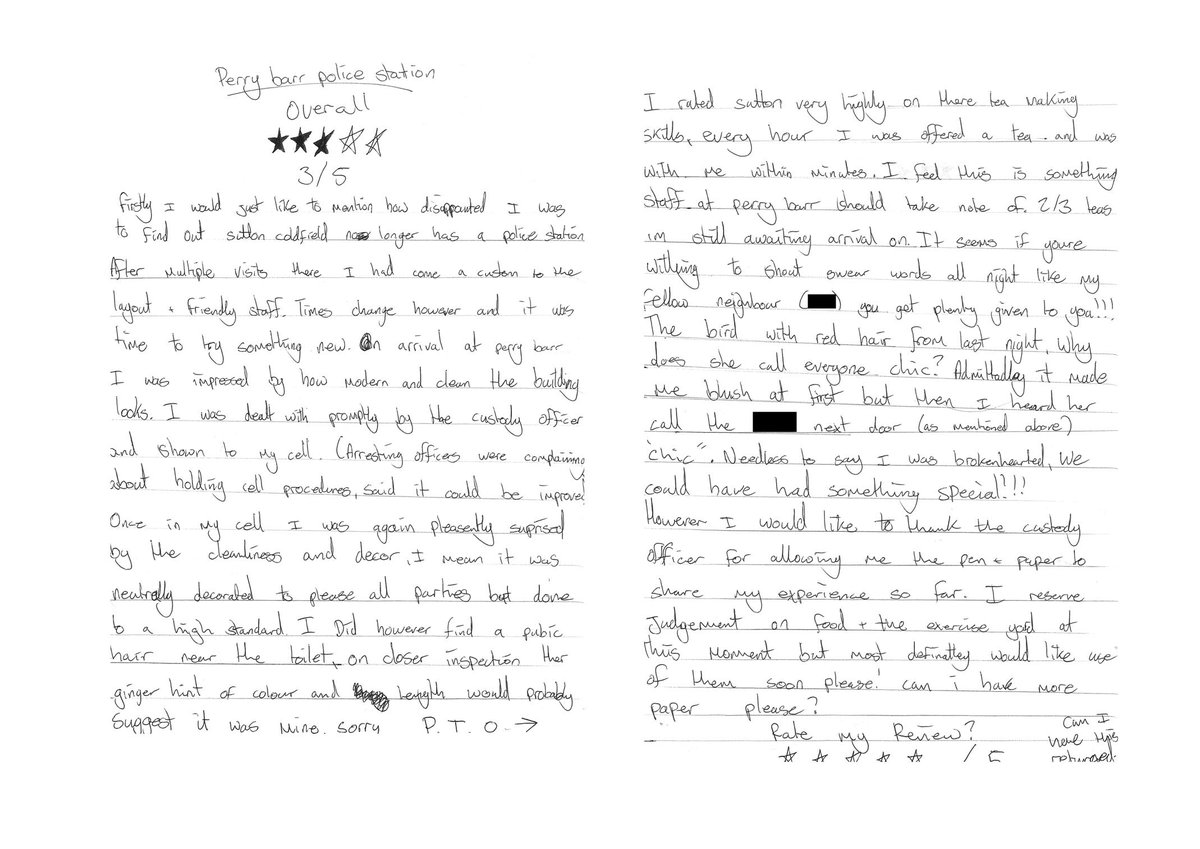 Perry barr police station
Overall
3/5
firstly I would just like to mention how disappanted I was
to find out sutton coldfield no longer has a police station
After multiple visits there I had come a custom to the
layout + friendly staff. Times change however and it was
time to try something new. On arrival at perry barr
I was impressed by how modern and clean the building
looks. I was dealt with promptly by the custody officer
and shown to my cell. (Arresting officers were complaining
about holding cell procedures, said it could be improved
Once in my cell I was again pleasently suprised
by the cleanliness and decor, I mean it was
neutrally decorated to please all parties but done
to a high standard. I Did however find a pubic
hair near the toilet, on closer inspection ther
ginger hint of colour and length would probably
suggest it was mine. sorry P.T.O. →
I rated sutton very highly on there tea making
skills, every hour I was offered a tea. and was
with me within minutes. I feel this is something
staff at perry barr should take note of. 2/3 teas
im still awaiting arrival on. It seems if youre
willying to shout swear words all night like my
fellow neighbour ( ) you get plenty given to you!!!
The bird with red hair from last night, why
does she call everyone chic? Admittadley it made
me blush at first but then I heard her
call the next door (as mentioned above)
"chic". Needless to say I was brokenhearted, We
could have had something special!!!
However I would like to thank the custody
officer for allowing me the pen + paper to
share my experience so far. I reserve
judgement on food + the exercise yard at
this moment but most definatley would like use
of them soon please! can i have more
paper please?
Rate my Review?
/ 5
Can I
have this
returned.